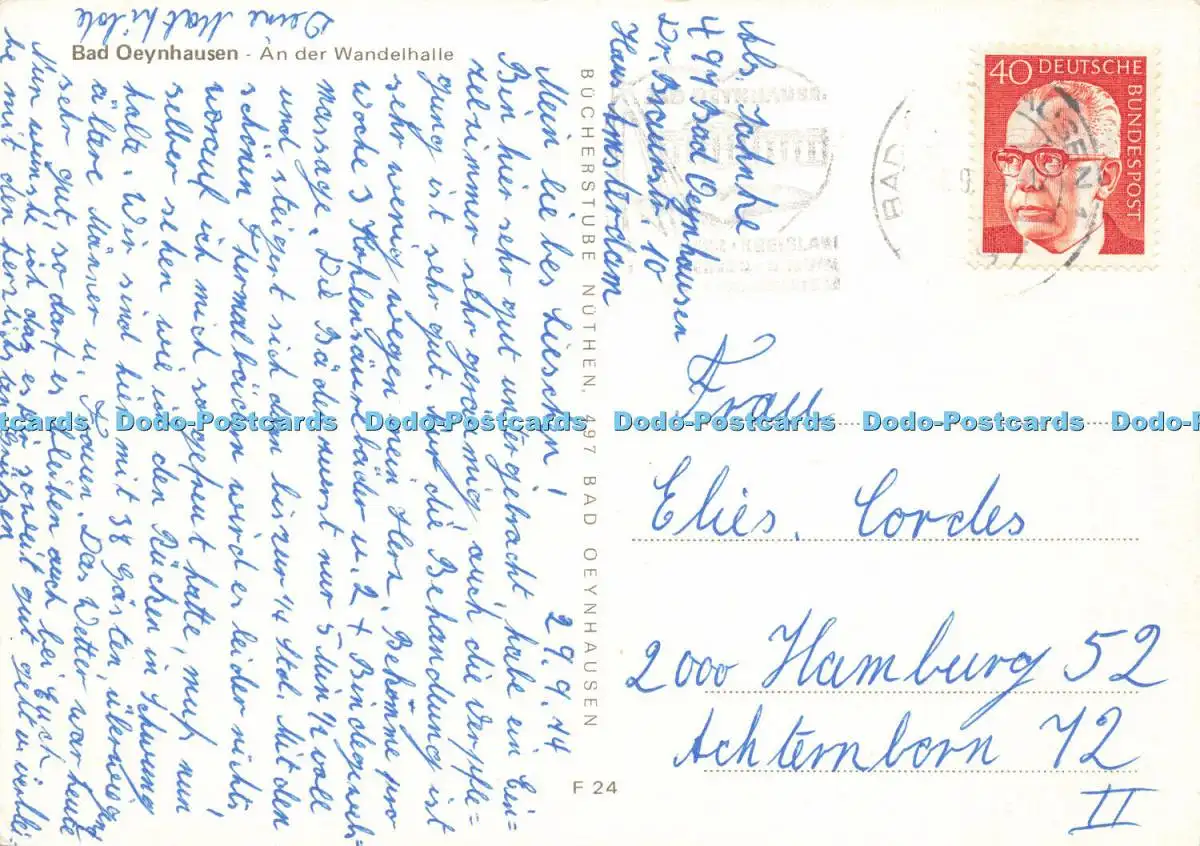 Bad Oeynhausen - An der Wandelhalle
Abs. Jahnke
497 Bad Oeynhausen
Dr. Braunstr. 10
Haus Amsterdam
29.9.74
Mein liebes Lieschen!
Bin hier sehr gut untergebracht, habe ein Ein=
zelzimmer sehr geräumig, auch die Verpfle=
gung ist sehr gut. Nur die Behandlung ist
sehr wenig wegen mein Herz. Bekomme pro
Woche 3 Kohlensäurebäder u. 2 x Bindegeweb=
massage. Die Bäder zuerst nur 5 Min 1/2 voll
und steigert sich dann bis zur 1/4 Std. Mit den
schönen Thermalbädern wird es leider nichts
worauf ich mich so gefreut hatte, muß nun
selber sehen wie ich den Rücken in Schwung
halte. Wir sind hier mit 38 Gästen, überwiegend
ältere Männer u. Frauen. Das Wetter war heute
sehr gut, so darf es bleiben auch bei Euch.
Nun wünsch ich das es Dir soweit gut geht u. verblei
be mit den herzlichsten Grüßen
Deine Mathilde
BÜCHERSTUBE NÜTHEN, 497 BAD OEYNHAUSEN
F 24
40 DEUTSCHE
BUNDESPOST
BAD
Frau
Elies. Cordes
2000 Hamburg 52
Achternborn 72
II
Dodo-Postcards Dodo-Postcards Dodo-Postcards Dodo-Postcards Dodo-Postcards